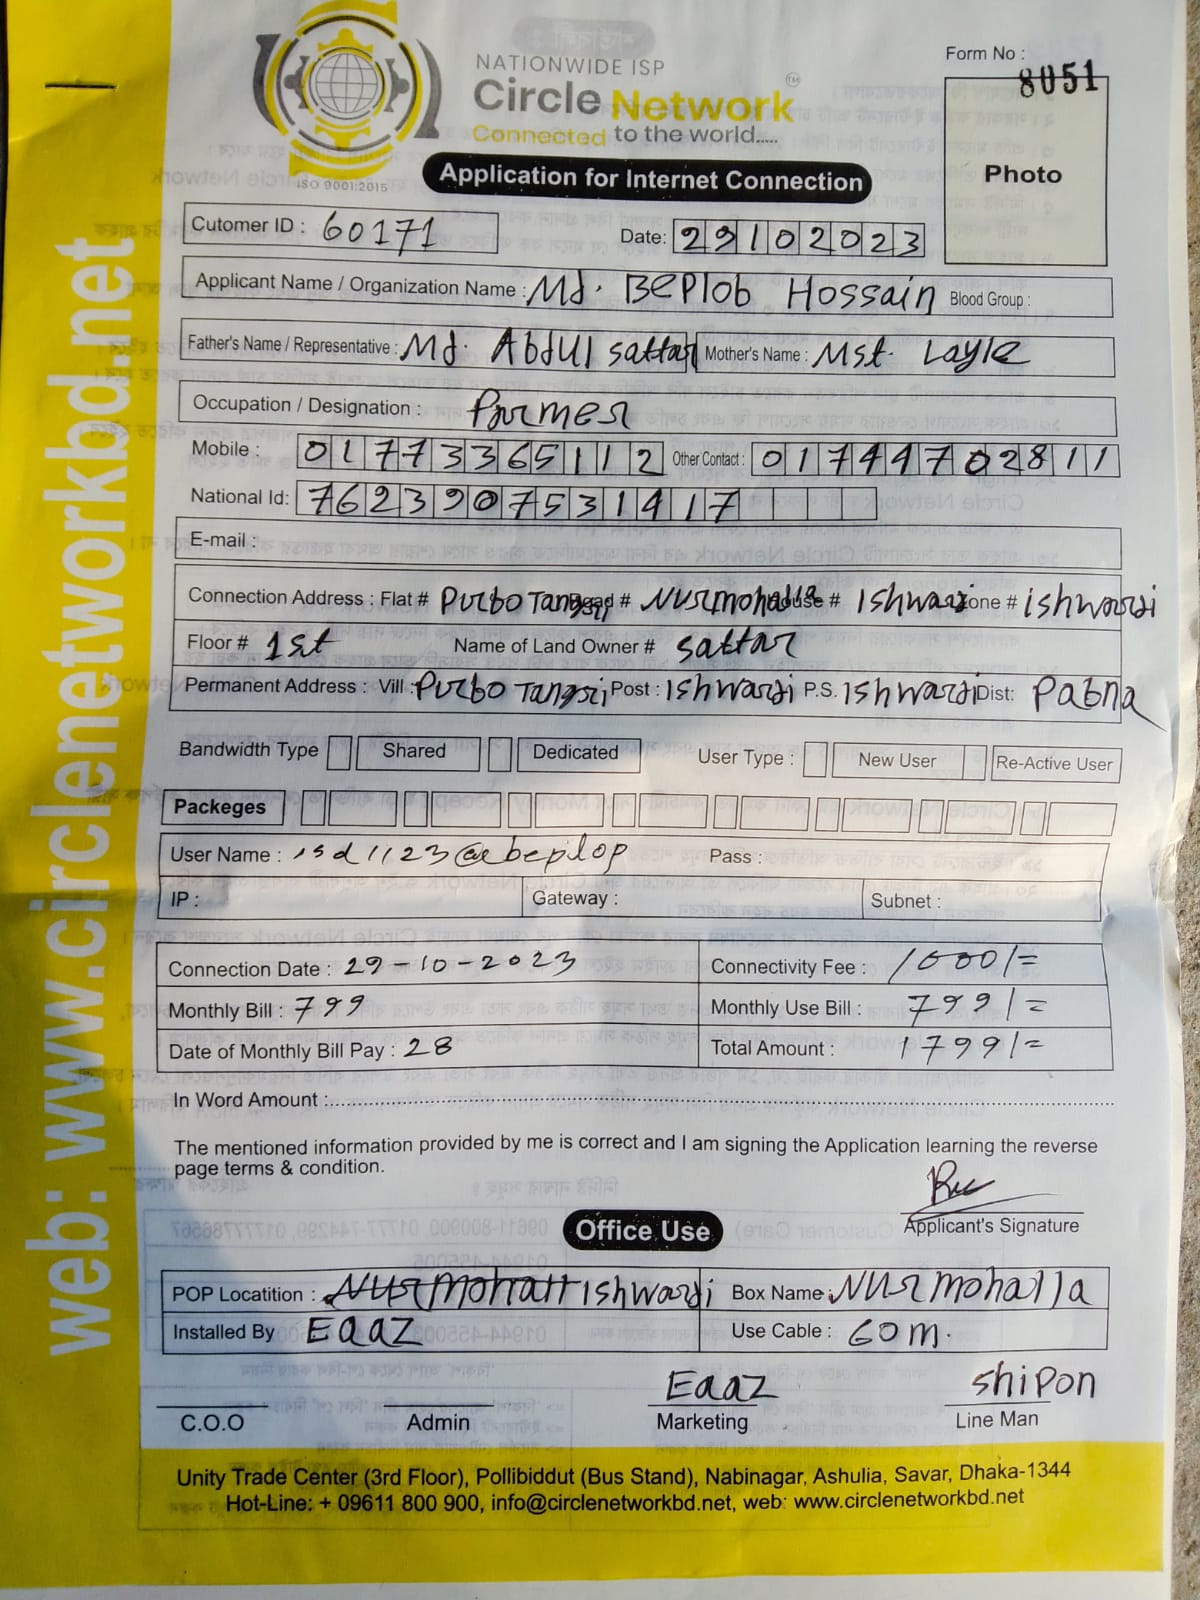 NATIONWIDE ISP
Circle Network TM
Connected to the world.....
ISO 9001:2015
Form No : 8051
Photo
Application for Internet Connection
Cutomer ID : 60171
Date: 29102023
Applicant Name / Organization Name : Md. Beplob Hossain Blood Group :
Father's Name / Representative : Md. Abdul sattar Mother's Name : Mst. Layle
Occupation / Designation : Farmer
Mobile : 01773365112 Other Contact : 01744702811
National Id: 7623907531417
E-mail :
Connection Address : Flat # Purbo Tangri Road # Nurmohalla House # Ishwardi Zone # ishwardi
Floor # 1st Name of Land Owner # sattar
Permanent Address : Vill : Purbo Tangri Post : Ishwardi P.S. Ishwardi Dist: Pabna
Bandwidth Type Shared Dedicated User Type : New User Re-Active User
Packeges
User Name : isd1123@bepilop Pass :
IP : Gateway : Subnet :
Connection Date : 29-10-2023 Connectivity Fee : 1000/=
Monthly Bill : 799 Monthly Use Bill : 799/=
Date of Monthly Bill Pay : 28 Total Amount : 1799/=
In Word Amount :
The mentioned information provided by me is correct and I am signing the Application learning the reverse
page terms & condition.
Applicant's Signature
Office Use
POP Locatition : Ishwardi Box Name : Nurmohalla
Installed By Eaaz Use Cable : 60m.
Eaaz shipon
C.O.O Admin Marketing Line Man
Unity Trade Center (3rd Floor), Pollibiddut (Bus Stand), Nabinagar, Ashulia, Savar, Dhaka-1344
Hot-Line: + 09611 800 900, info@circlenetworkbd.net, web: www.circlenetworkbd.net
web: www.circlenetworkbd.net